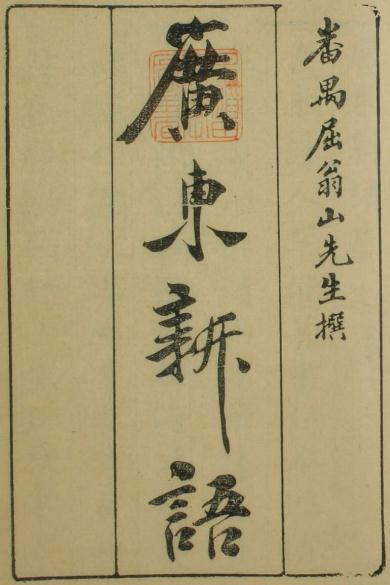 番禺屈翁山先生撰
廣東新語